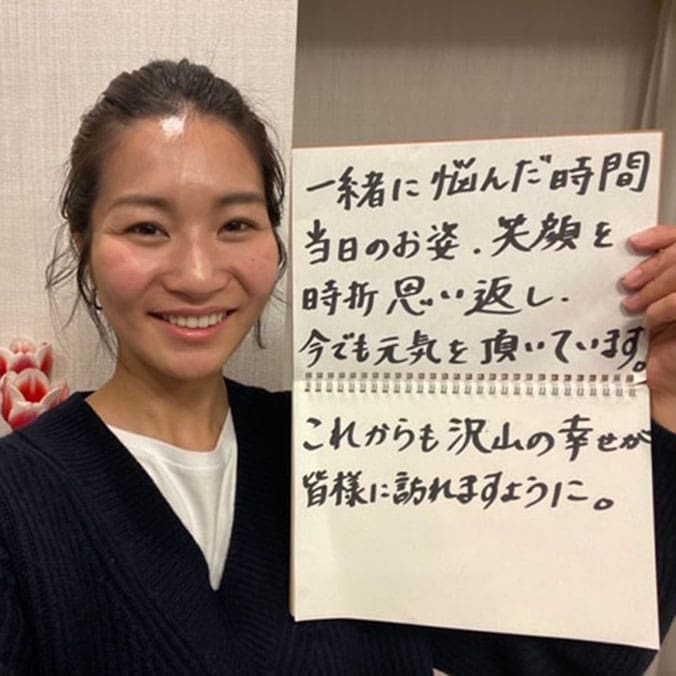 一緒に悩んだ時間
当日のお姿．笑顔を
時折思い返し．
今でも元気を頂いています。
これからも沢山の幸せが
皆様に訪れますように。